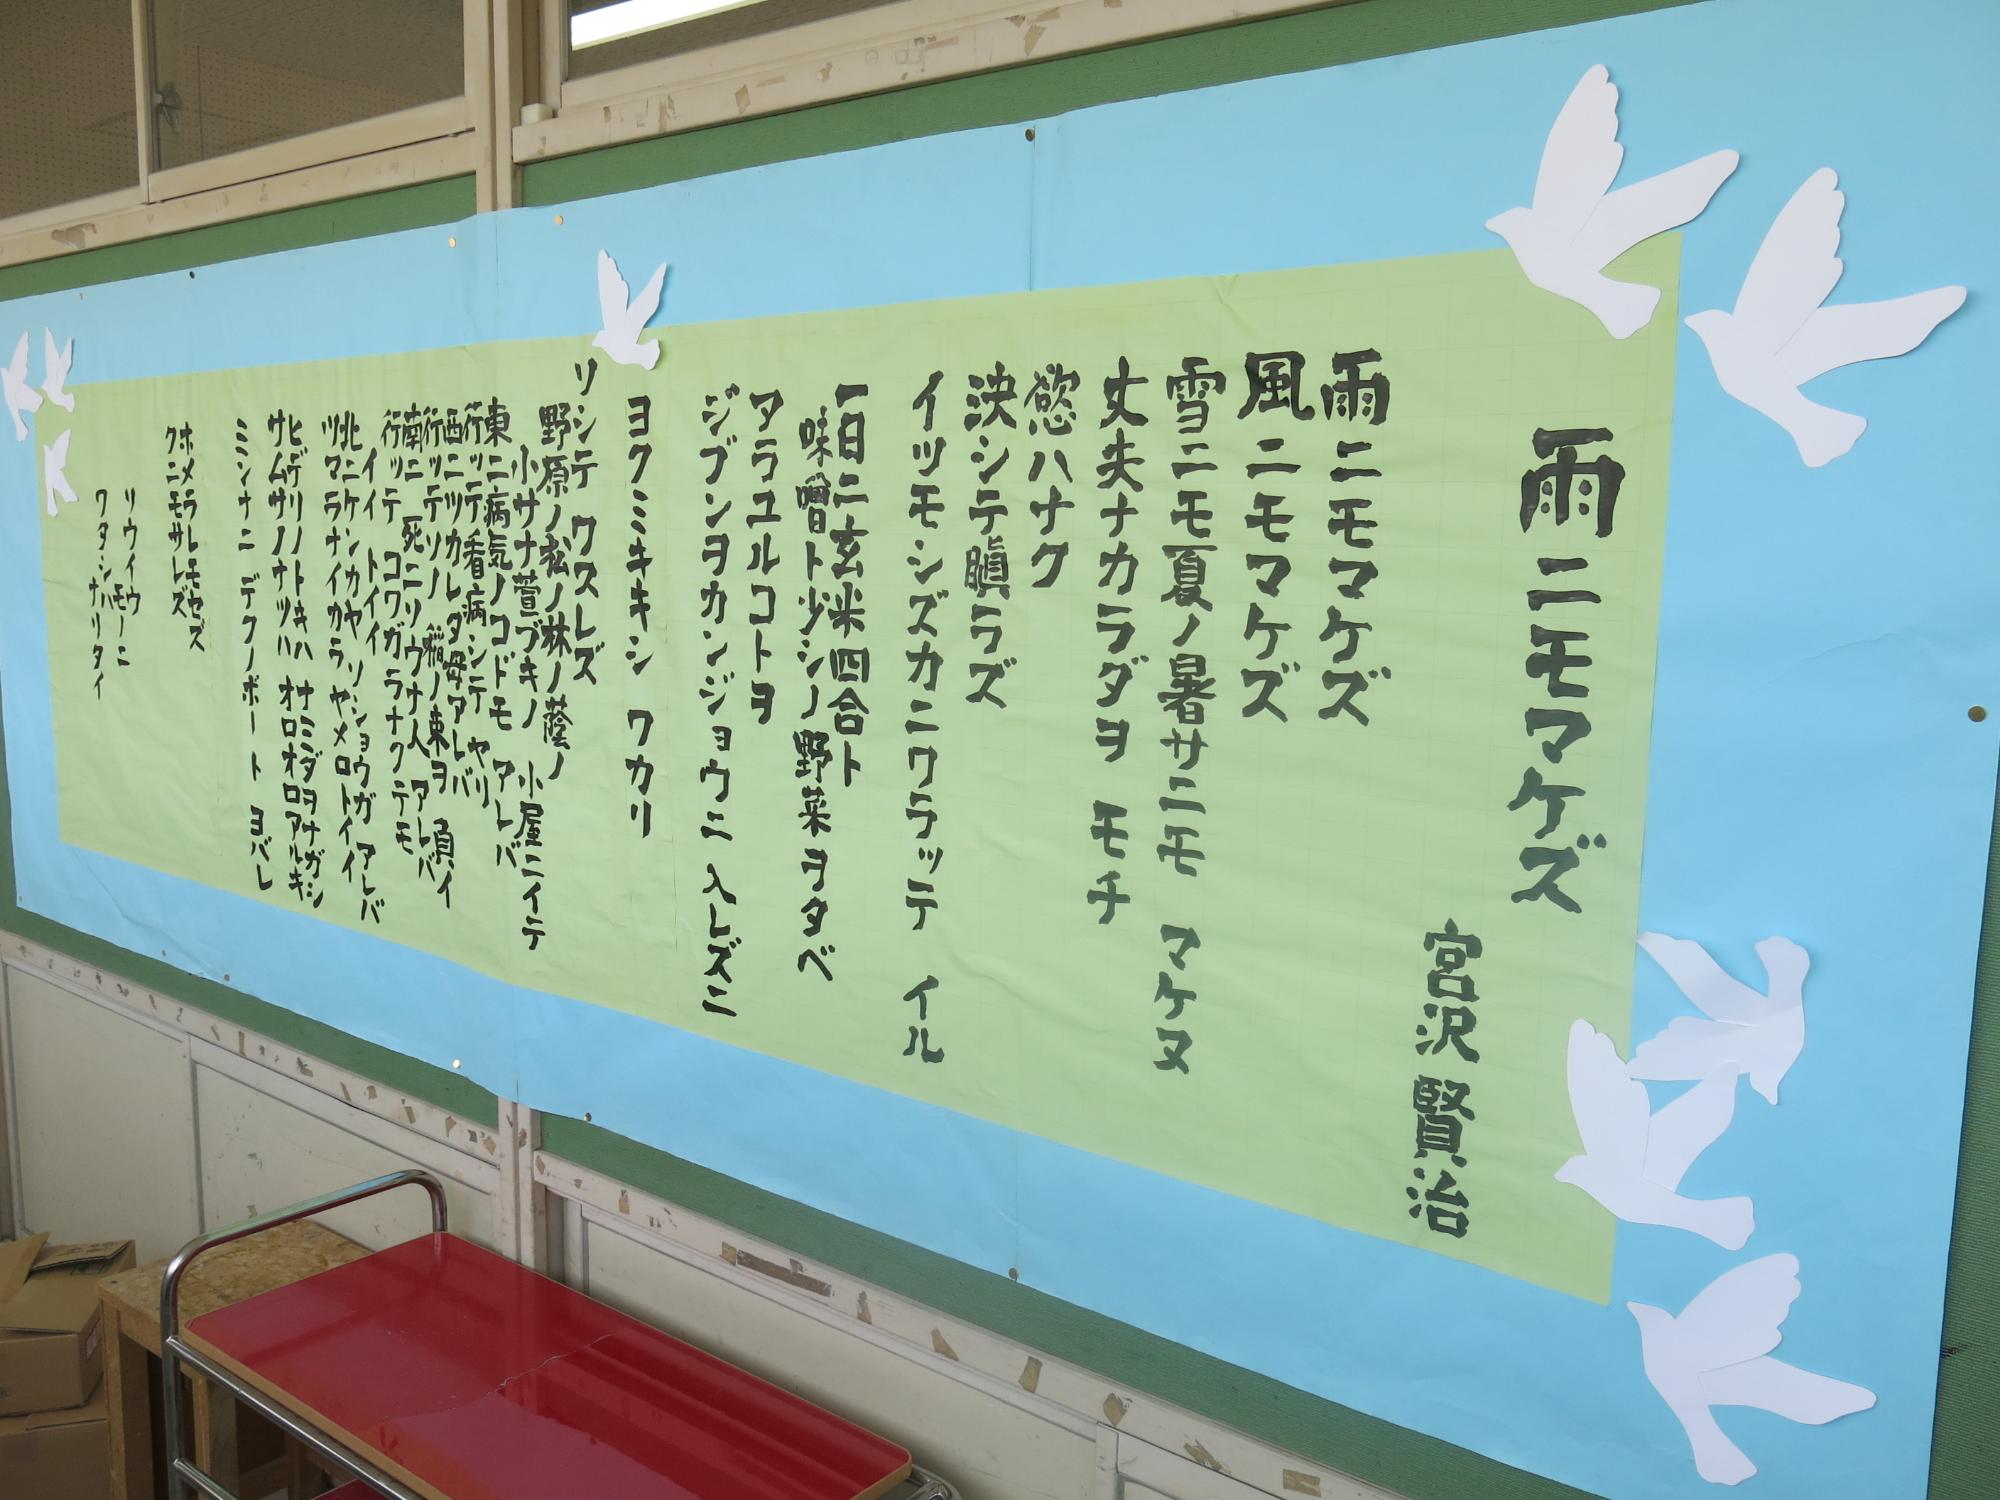 雨ニモマケズ
宮沢 賢治
雨ニモマケズ
風ニモマケズ
雪ニモ夏ノ暑サニモ マケヌ
丈夫ナカラダヲ モチ
慾ハナク
決シテ瞋ラズ
イツモシズカニワラッテ イル
一日ニ玄米四合ト
味噌ト少シノ野菜ヲタベ
アラユルコトヲ
ジブンヲカンジョウニ 入レズニ
ヨクミキキシ ワカリ
ソシテ ワスレズ
野原ノ松ノ林ノ蔭ノ
小サナ萱ブキノ 小屋ニイテ
東ニ病気ノコドモ アレバ
行ッテ看病シテ ヤリ
西ニツカレタ母アレバ
行ッテソノ 稲ノ束ヲ 負イ
南ニ 死ニソウナ人 アレバ
行ッテ コワガラナクテモ
イイ トイイ
北ニケンカヤ ソショウガ アレバ
ツマラナイカラ ヤメロトイイ
ヒデリノトキハ ナミダヲナガシ
サムサノナツハ オロオロアルキ
ミンナニ デクノボート ヨバレ
ホメラレモセズ
クニモサレズ
ソウイウ
モノニ
ワタシハ
ナリタイ